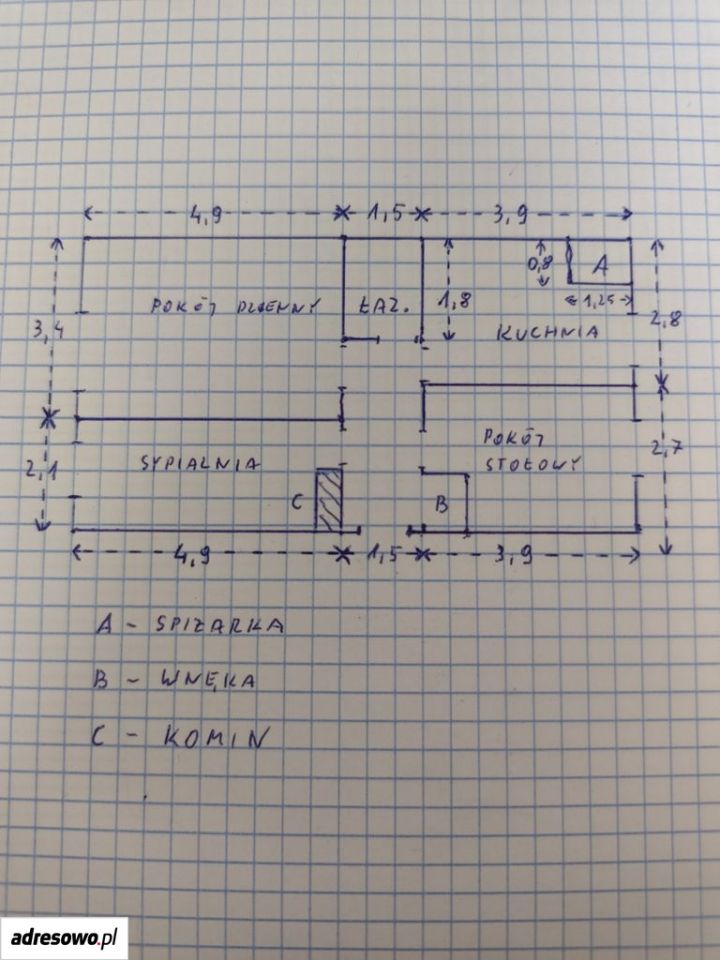 4,9 1,5 3,9
0,8 A
1,25
POKÓJ DZIENNY ŁAZ. 1,8
3,4 KUCHNIA 2,8
POKÓJ
STOŁOWY 2,7
2,1 SYPIALNIA
C B
4,9 1,5 3,9
A - SPIŻARKA
B - WNĘKA
C - KOMIN
adresowo.pl